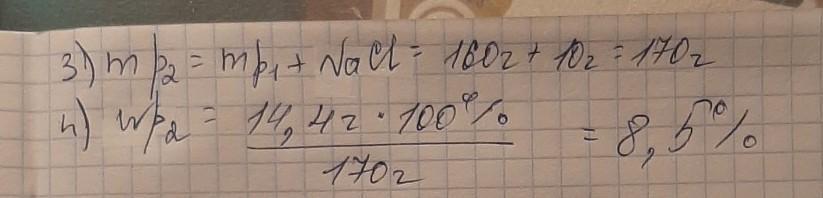 3) m p₂ = mp₁ + NaCl = 160г + 10г = 170г
4) wp₂ = 14,4г · 100% / 170г = 8,5%